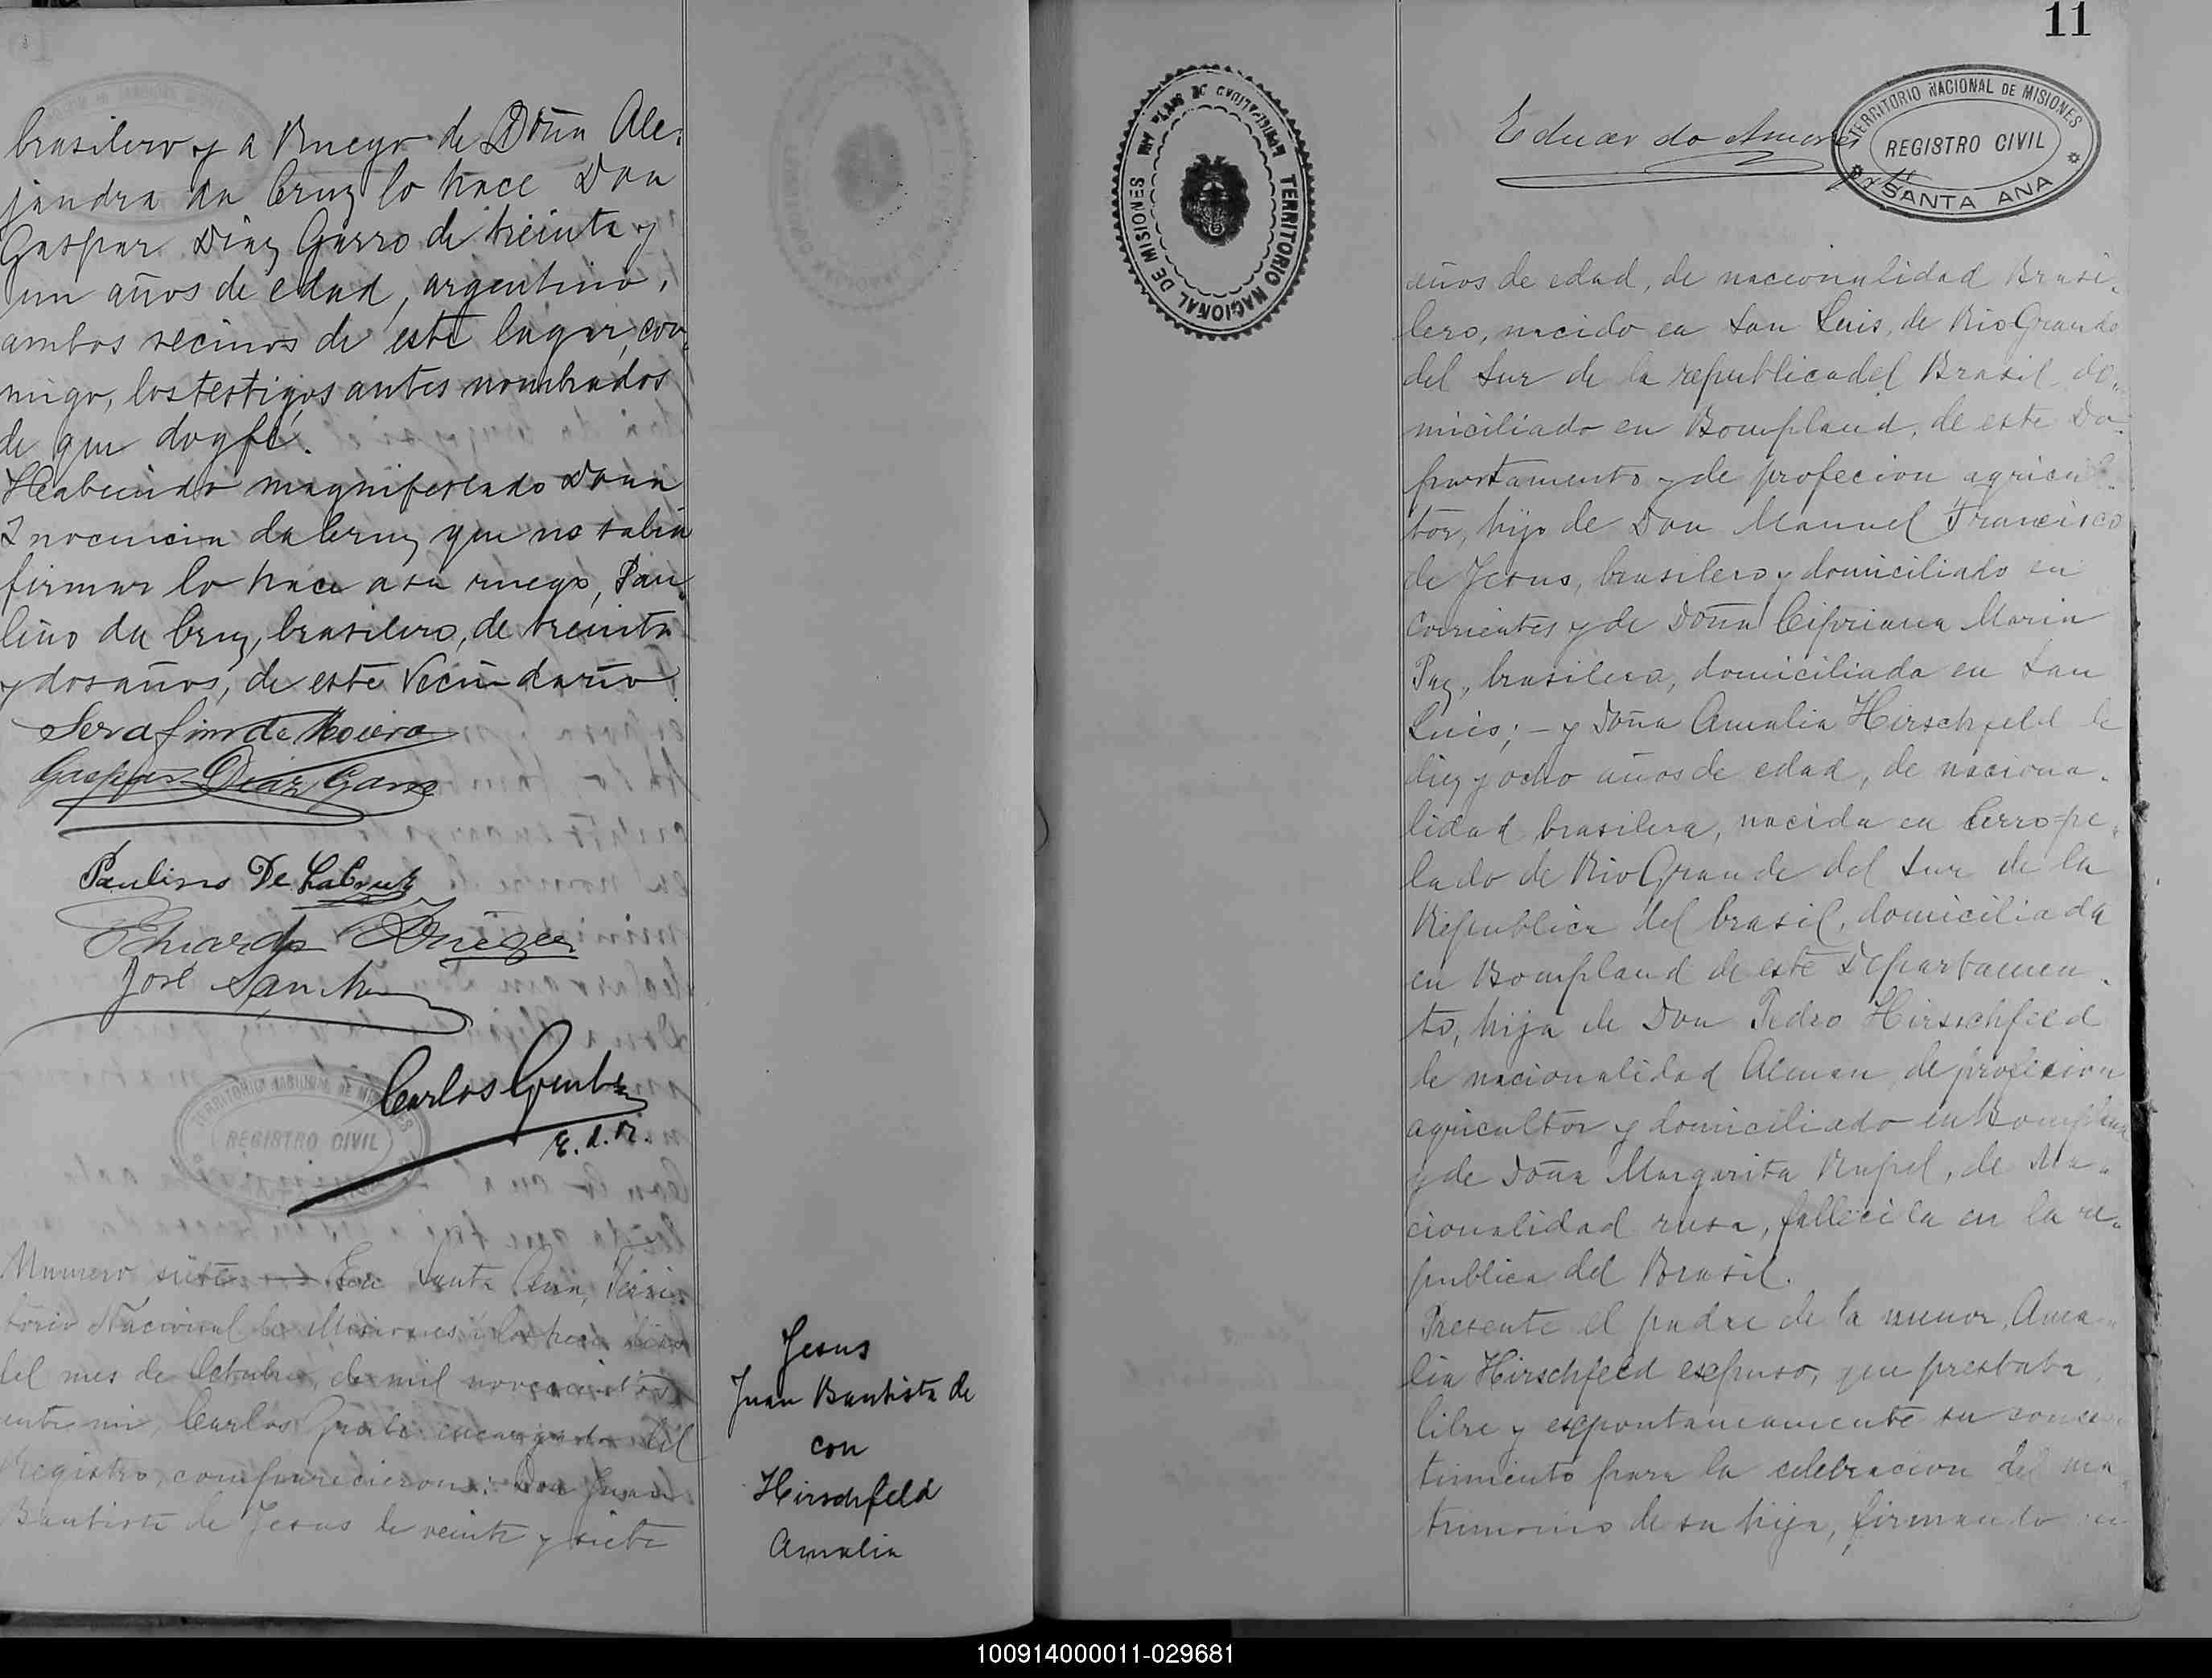 brasilero y a Ruego de Doña Ale-
jandra da Cruz lo hace Don
Gaspar Diaz Garro de treinta y
un años de edad, argentino,
ambos vecinos de este lugar, con
migo, los testigos antes nombrados
de que doy fé.
Habiendo magnifestado Doña
Inocencia da Cruz que no sabia
firmar lo hace a su ruego, Pau
lino da Cruz, brasilero, de treinta
y dos años, de este Vecindario
Serafim de
Gaspar Diaz Garro
Paulino De LaCruz
Eduardo
José Sanchez
Carlos
E. d. R.
TERRITORIO NACIONAL DE MISIONES
REGISTRO CIVIL
Numero siete — En Santa Ana, Terri-
torio Nacional de Misiones a los trece dias
del mes de Octubre, de mil novecientos
ante mi, Carlos encargado del
Registro, comparecieron: Don Juan
Bautista de Jesus de veinte y siete
Jesus
Juan Bautista de
con
Hirschfeld
Amalia
11
TERRITORIO NACIONAL DE MISIONES
Eduardo
TERRITORIO NACIONAL DE MISIONES
REGISTRO CIVIL
SANTA ANA
años de edad, de nacionalidad Brasi-
lero, nacido en San Luis, de Rio Grande
del Sur de la republica del Brasil do-
miciliado en Bompland, de este De-
partamento y de profecion agricul-
tor, hijo de Don Manuel Francisco
de Jesus, brasilero y domiciliado en
Corrientes y de Doña Cipriana Maria
Paz, brasilera, domiciliada en San
Luis; – y Doña Amalia Hirschfeld de
diez y ocho años de edad, de naciona-
lidad brasilera, nacida en Cerro pe-
lado de Rio Grande del Sur de la
Republica del brasil, domiciliada
en Bompland de este Departamen-
to, hija de Don Pedro Hirsschfeld
de nacionalidad Aleman, de profecion
agricultor y domiciliado en Bompland
y de Doña Margarita Rupel, de Na-
cionalidad rusa, fallecida en la re-
publica del Brasil.
Presente el padre de la menor, Ama-
lia Hirschfeld esepuso, que prestaba
libre y esepontaneamente su consen-
timiento para la celebracion del ma-
trimonio de su hija, firmando
100914000011-029681